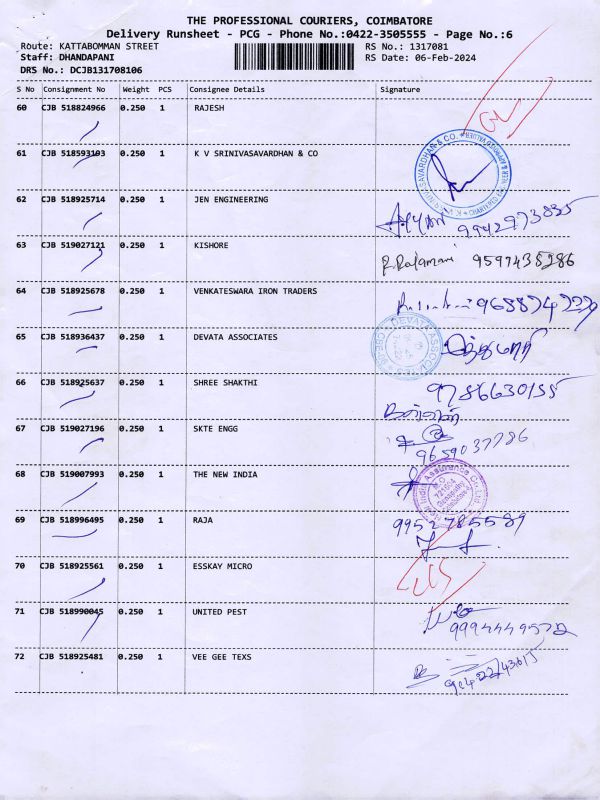 THE PROFESSIONAL COURIERS, COIMBATORE
Delivery Runsheet - PCG - Phone No.:0422-3505555 - Page No.:6
Route: KATTABOMMAN STREET RS No.: 1317081
Staff: DHANDAPANI RS Date: 06-Feb-2024
DRS No.: DCJB131708106
S No Consignment No Weight PCS Consignee Details Signature
60 CJB 518824966 0.250 1 RAJESH
61 CJB 518593103 0.250 1 K V SRINIVASAVARDHAN & CO
62 CJB 518925714 0.250 1 JEN ENGINEERING
9942973835
63 CJB 519027121 0.250 1 KISHORE
9597435286
64 CJB 518925678 0.250 1 VENKATESWARA IRON TRADERS
65 CJB 518936437 0.250 1 DEVATA ASSOCIATES DEVATA ASSOCIATES
66 CJB 518925637 0.250 1 SHREE SHAKTHI 9786630155
67 CJB 519027196 0.250 1 SKTE ENGG
9659037786
68 CJB 519007993 0.250 1 THE NEW INDIA
69 CJB 518996495 0.250 1 RAJA 9952785589
70 CJB 518925561 0.250 1 ESSKAY MICRO
71 CJB 518990045 0.250 1 UNITED PEST
72 CJB 518925481 0.250 1 VEE GEE TEXS